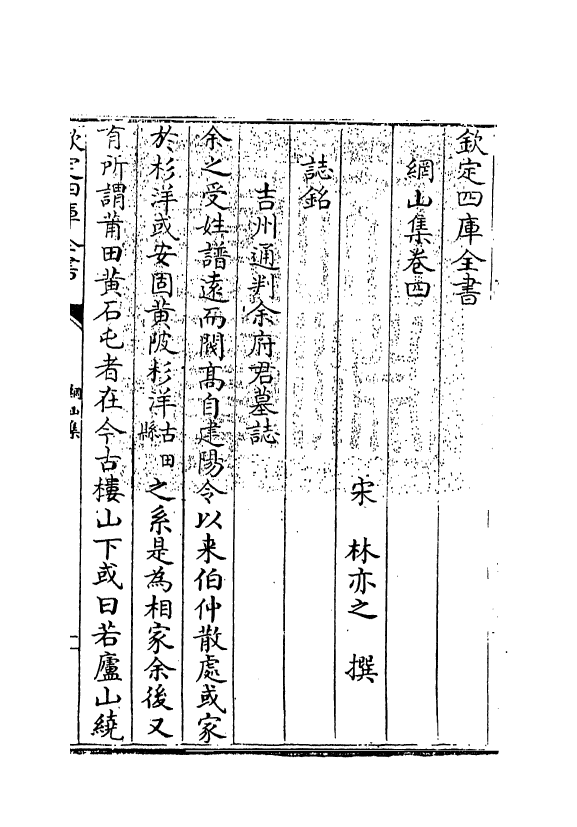 欽定四庫全書
網山集卷四
宋　林亦之　撰
誌銘
吉州通判余府君墓誌
余之受姓譜遠而閥髙自建陽令以来伯仲散處或家
於杉洋或安固黄陂杉洋古田縣之系是為相家余後又
有所謂莆田黄石屯者在今古樓山下或曰若廬山繞
欽定四庫全書
網山集
一